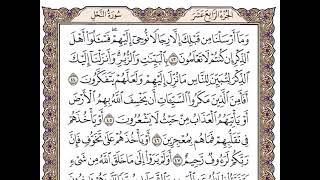 الجزء الرابع عشر
سورة النحل
وَمَآ أَرْسَلْنَا مِن قَبْلِكَ إِلَّا رِجَالًا نُّوحِىٓ إِلَيْهِمْ ۚ فَسْـَٔلُوٓا۟ أَهْلَ
ٱلذِّكْرِ إِن كُنتُمْ لَا تَعْلَمُونَ ٤٣ بِٱلْبَيِّنَٰتِ وَٱلزُّبُرِ ۗ وَأَنزَلْنَآ إِلَيْكَ
ٱلذِّكْرَ لِتُبَيِّنَ لِلنَّاسِ مَا نُزِّلَ إِلَيْهِمْ وَلَعَلَّهُمْ يَتَفَكَّرُونَ ٤٤
أَفَأَمِنَ ٱلَّذِينَ مَكَرُوا۟ ٱلسَّيِّـَٔاتِ أَن يَخْسِفَ ٱللَّهُ بِهِمُ ٱلْأَرْضَ
أَوْ يَأْتِيَهُمُ ٱلْعَذَابُ مِنْ حَيْثُ لَا يَشْعُرُونَ ٤٥ أَوْ يَأْخُذَهُمْ
فِى تَقَلُّبِهِمْ فَمَا هُم بِمُعْجِزِينَ ٤٦ أَوْ يَأْخُذَهُمْ عَلَىٰ تَخَوُّفٍ فَإِنَّ
رَبَّكُمْ لَرَءُوفٌ رَّحِيمٌ ٤٧ أَوَلَمْ يَرَوْا۟ إِلَىٰ مَا خَلَقَ ٱللَّهُ مِن شَىْءٍ